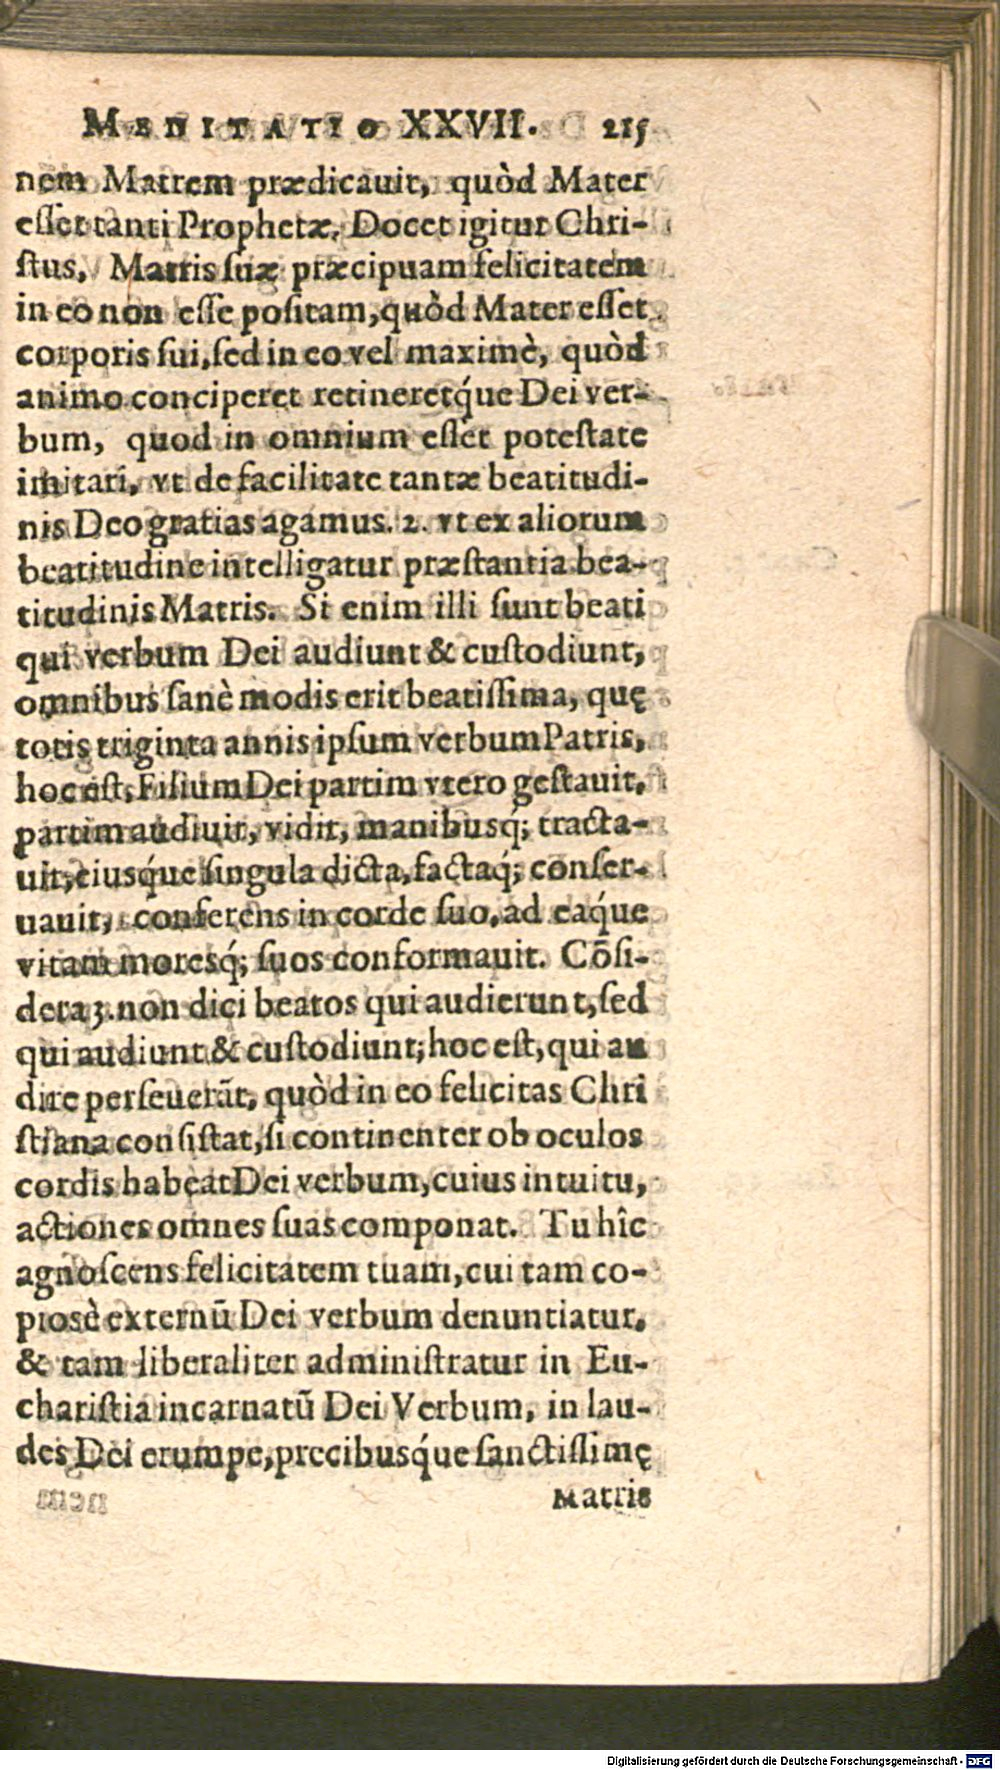 MEDITATIO XXVII. 215
nem Matrem prædicauit, quòd Mater
eſſet tanti Prophetæ, Docet igitur Chri-
ſtus, Matris ſuæ præcipuam felicitatem
in eo non eſſe poſitam, quòd Mater eſſet
corporis ſui, ſed in eo vel maximè, quòd
animo conciperet retineretq́ue Dei ver-
bum, quod in omnium eſſet poteſtate
imitari, vt de facilitate tantæ beatitudi-
nis Deo gratias agamus. 2. vt ex aliorum
beatitudine intelligatur præſtantia bea-
titudinis Matris. Si enim illi ſunt beati
qui verbum Dei audiunt & cuſtodiunt,
omnibus ſanè modis erit beatiſſima, quę
totis triginta annis ipſum verbum Patris,
hoc eſt, Filium Dei partim vtero geſtauit,
partim audiuit, vidit, manibusq́; tracta-
uit, eiusq́ue ſingula dicta, factaq́; conſer-
uauit, conferens in corde ſuo, ad eaq́ue
vitam moresq́; ſuos conformauit. Cõſi-
dera 3. non dici beatos qui audierunt, ſed
qui audiunt & cuſtodiunt; hoc eſt, qui au
dire perſeuerãt, quòd in eo felicitas Chri
ſtiana conſiſtat, ſi continenter ob oculos
cordis habeat Dei verbum, cuius intuitu,
actiones omnes ſuas componat. Tu hîc
agnoſcens felicitatem tuam, cui tam co-
piosè externũ Dei verbum denuntiatur,
& tam liberaliter adminiſtratur in Eu-
chariſtia incarnatũ Dei Verbum, in lau-
des Dei erumpe, precibusq́ue ſanctiſſimę
Matris
Digitalisierung gefördert durch die Deutsche Forschungsgemeinschaft - DFG